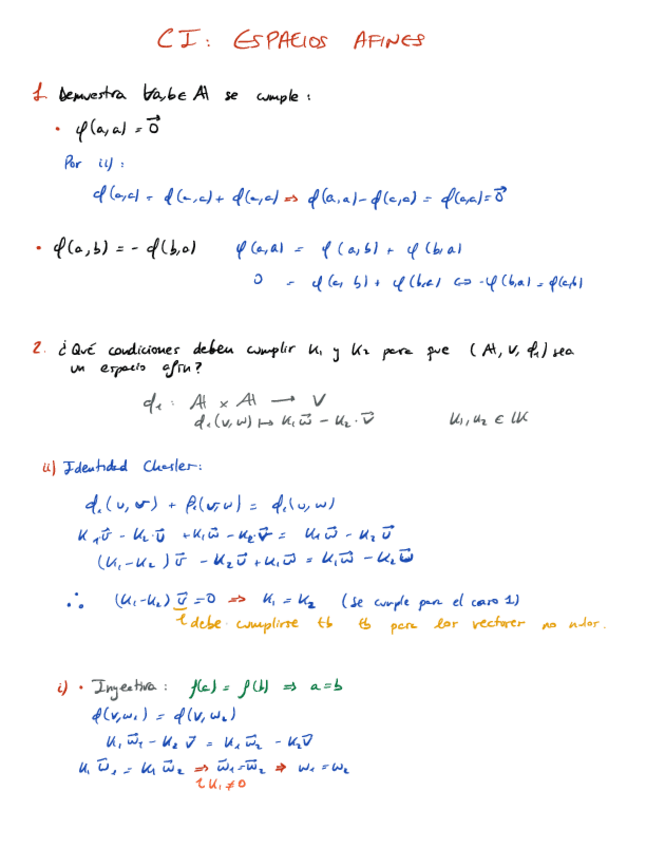 CI: ESPACIOS AFINES
1. Demuestra ∀a,b ∈ A se cumple:
• φ(a,a) = 0⃗
Por ii):
φ(a,a) = φ(a,a) + φ(a,a) ⇒ φ(a,a) - φ(a,a) = φ(a,a) = 0⃗
• φ(a,b) = - φ(b,a) φ(a,a) = φ(a,b) + φ(b,a)
0 = φ(a,b) + φ(b,a) ⇔ -φ(b,a) = φ(a,b)
2. ¿Qué condiciones deben cumplir K₁ y K₂ para que (A, V, φ₁) sea
un espacio afín?
φ₁: A × A → V
φ₁(v,w) ↦ K₁w⃗ - K₂·v⃗ K₁,K₂ ∈ K
ii) Identidad Chasles:
φ₁(u,v) + φ₁(v,w) = φ₁(u,w)
K₁v⃗ - K₂·u⃗ + K₁w⃗ - K₂·v⃗ = K₁w⃗ - K₂u⃗
(K₁-K₂)v⃗ - K₂u⃗ + K₁w⃗ = K₁w⃗ - K₂u⃗
∴ (K₁-K₂)v⃗ = 0 ⇒ K₁ = K₂ (se cumple para el caso 1)
debe cumplirse tb tb para los vectores no nulos.
i) • Inyectiva: f(a) = f(b) ⇒ a=b
φ(v,w₁) = φ(v,w₂)
K₁w⃗₁ - K₂v⃗ = K₁w⃗₂ - K₂v⃗
K₁w⃗₁ = K₁w⃗₂ ⇒ w⃗₁=w⃗₂ ⇒ w₁=w₂
K₁≠0